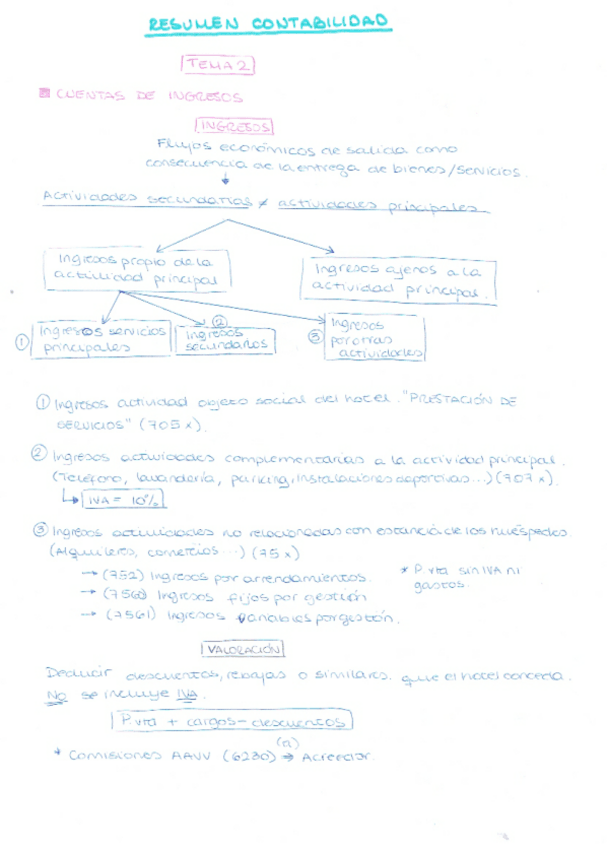 RESUMEN CONTABILIDAD
TEMA 2
CUENTAS DE INGRESOS
INGRESOS
Flujos económicos de salida como
consecuencia de la entrega de bienes/servicios.
Actividades secundarias ≠ actividades principales
Ingresos propio de la
actividad principal
Ingresos ajenos a la
actividad principal.
① Ingresos servicios
principales
②
Ingresos
secundarios
③ Ingresos
por otras
actividades
① Ingresos actividad objeto social del hotel. "PRESTACIÓN DE
SERVICIOS" (705x).
② Ingresos actividades complementarias a la actividad principal.
(Teléfono, lavandería, parking, instalaciones deportivas...) (707x).
IVA = 10%
③ Ingresos actividades no relacionadas con estancia de los huéspedes
(Alquileres, comercios...) (75x)
→ (752) Ingresos por arrendamientos.
→ (7560) Ingresos fijos por gestión
→ (7561) Ingresos variables por gestión.
* P. vta sin IVA ni
gastos.
VALORACIÓN
Deducir descuentos, rebajas o similares que el hotel conceda.
No se incluye IVA.
P. vta + cargos - descuentos
(a)
* Comisiones AAVV (6230) → Acreedor.